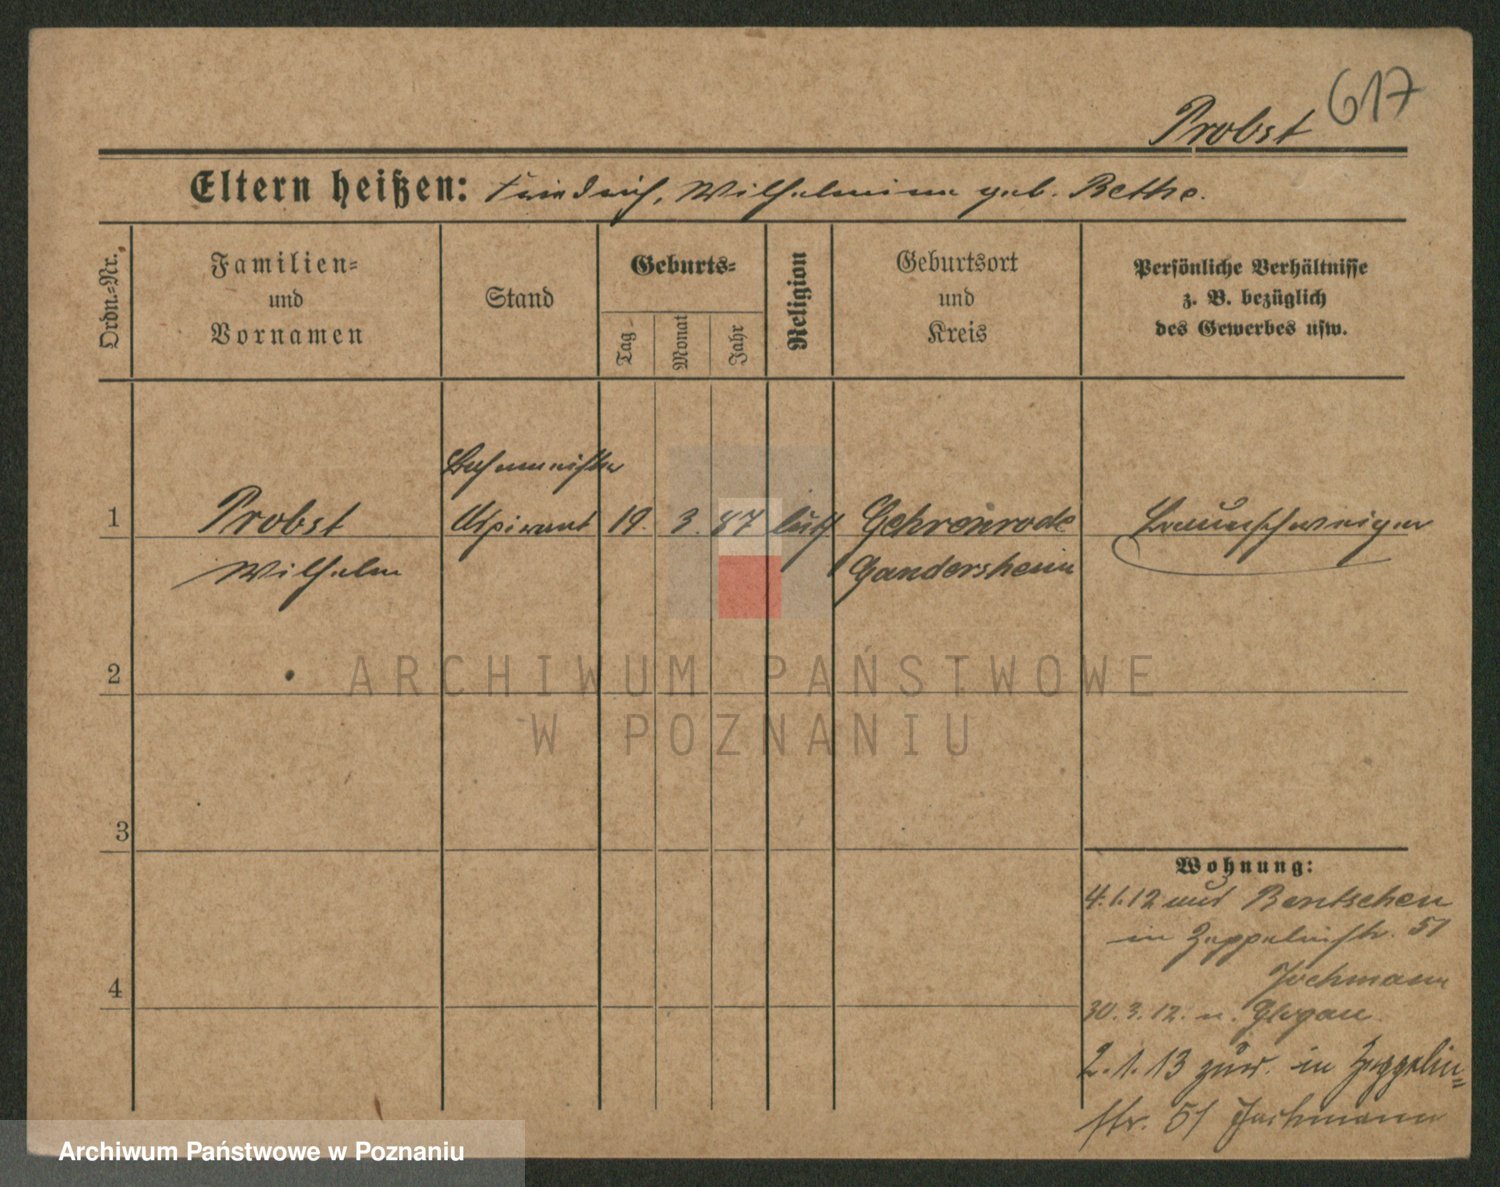 617
Probst
Eltern heißen: Friedrich, Wilhelmine geb. Bethe.
Ordn.-Nr.
Familien-
und
Vornamen
Stand
Geburts-
Tag
Monat
Jahr
Religion
Geburtsort
und
Kreis
Persönliche Verhältnisse
z. B. bezüglich
des Gewerbes usw.
1
Probst
Wilhelm
Aspirant
19.
3.
87
luth
Gehrenrode
Gandersheim
Braunschweiger
2
3
4
Wohnung:
4.1.12 aus Bentschen
in Zeppelinstr. 51
Jochmann
30.3.12. n. Glogau.
2.1.13 zur. in Zeppelin-
str. 51 Jochmann
ARCHIWUM PAŃSTWOWE
W POZNANIU
Archiwum Państwowe w Poznaniu